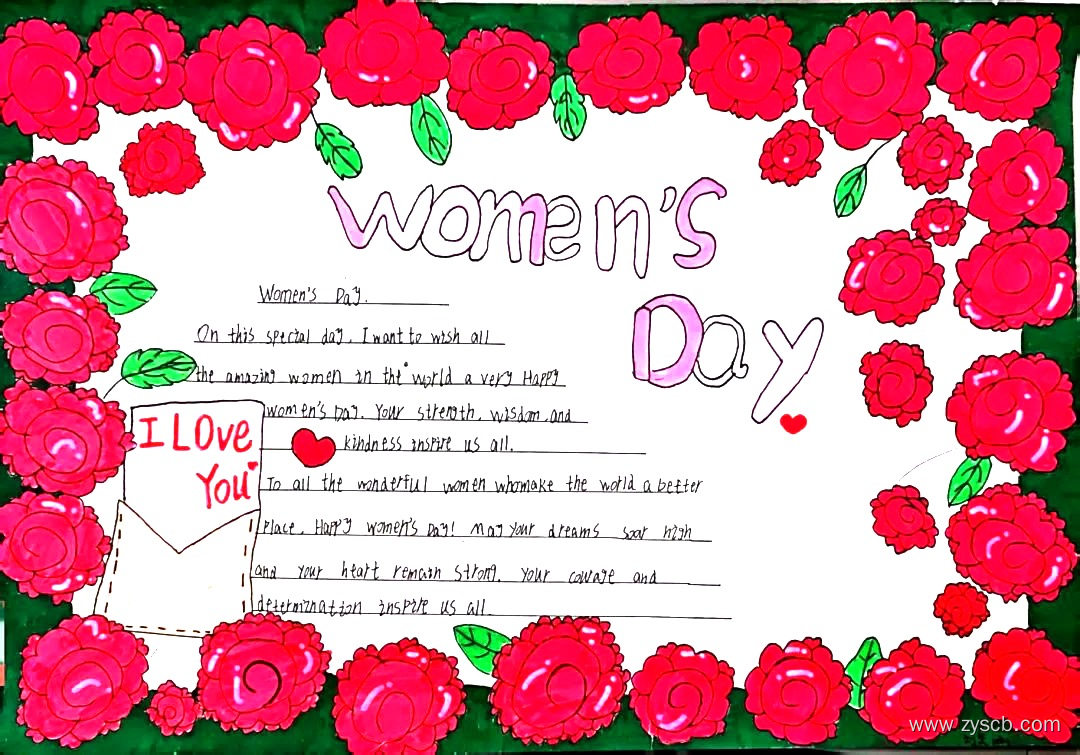 Women's
Day
Women's Day.
On this special day, I want to wish all
the amazing women in the world a very Happy
women's Day. Your strength, wisdom, and
kindness inspire us all.
I LOve
You
To all the wonderful women whomake the world a better
place, Happy women's Day! May your dreams soar high
and your heart remain strong. Your courage and
determination inspire us all.
www.zyscb.com